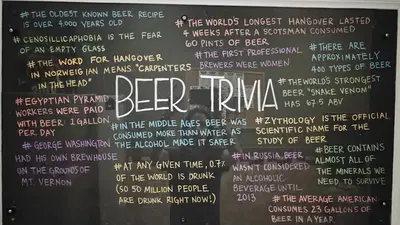 # THE OLDEST KNOWN BEER RECIPE
IS OVER 4000 YEARS OLD
# CENOSILLICAPHOBIA IS THE FEAR
OF AN EMPTY GLASS
# THE WORD FOR HANGOVER
IN NORWEIGAN MEANS "CARPENTERS
IN THE HEAD"
# EGYPTIAN PYRAMID
WORKERS WERE PAID
WITH BEER: 1 GALLON
PER DAY
# GEORGE WASHINGTON
HAD HIS OWN BREWHOUSE
ON THE GROUNDS OF
MT. VERNON
# THE WORLD'S LONGEST HANGOVER LASTED
4 WEEKS AFTER A SCOTSMAN CONSUMED
60 PINTS OF BEER
# THE FIRST PROFESSIONAL
BREWERS WERE WOMEN
# THERE ARE
APPROXIMATELY
400 TYPES OF BEER
# THE WORLD'S STRONGEST
BEER "SNAKE VENOM"
HAS 67.5 ABV
BEER TRIVIA
# IN THE MIDDLE AGES BEER WAS
CONSUMED MORE THAN WATER AS
THE ALCOHOL MADE IT SAFER
# ZYTHOLOGY IS THE OFFICIAL
SCIENTIFIC NAME FOR THE
STUDY OF BEER
# AT ANY GIVEN TIME, 0.7%
OF THE WORLD IS DRUNK
(SO 50 MILLION PEOPLE
ARE DRUNK RIGHT NOW!)
# IN RUSSIA, BEER
WASN'T CONSIDERED
AN ALCOHOLIC
BEVERAGE UNTIL
2013
# BEER CONTAINS
ALMOST ALL OF
THE MINERALS WE
NEED TO SURVIVE
# THE AVERAGE AMERICAN
CONSUMES 23 GALLONS OF
BEER IN A YEAR